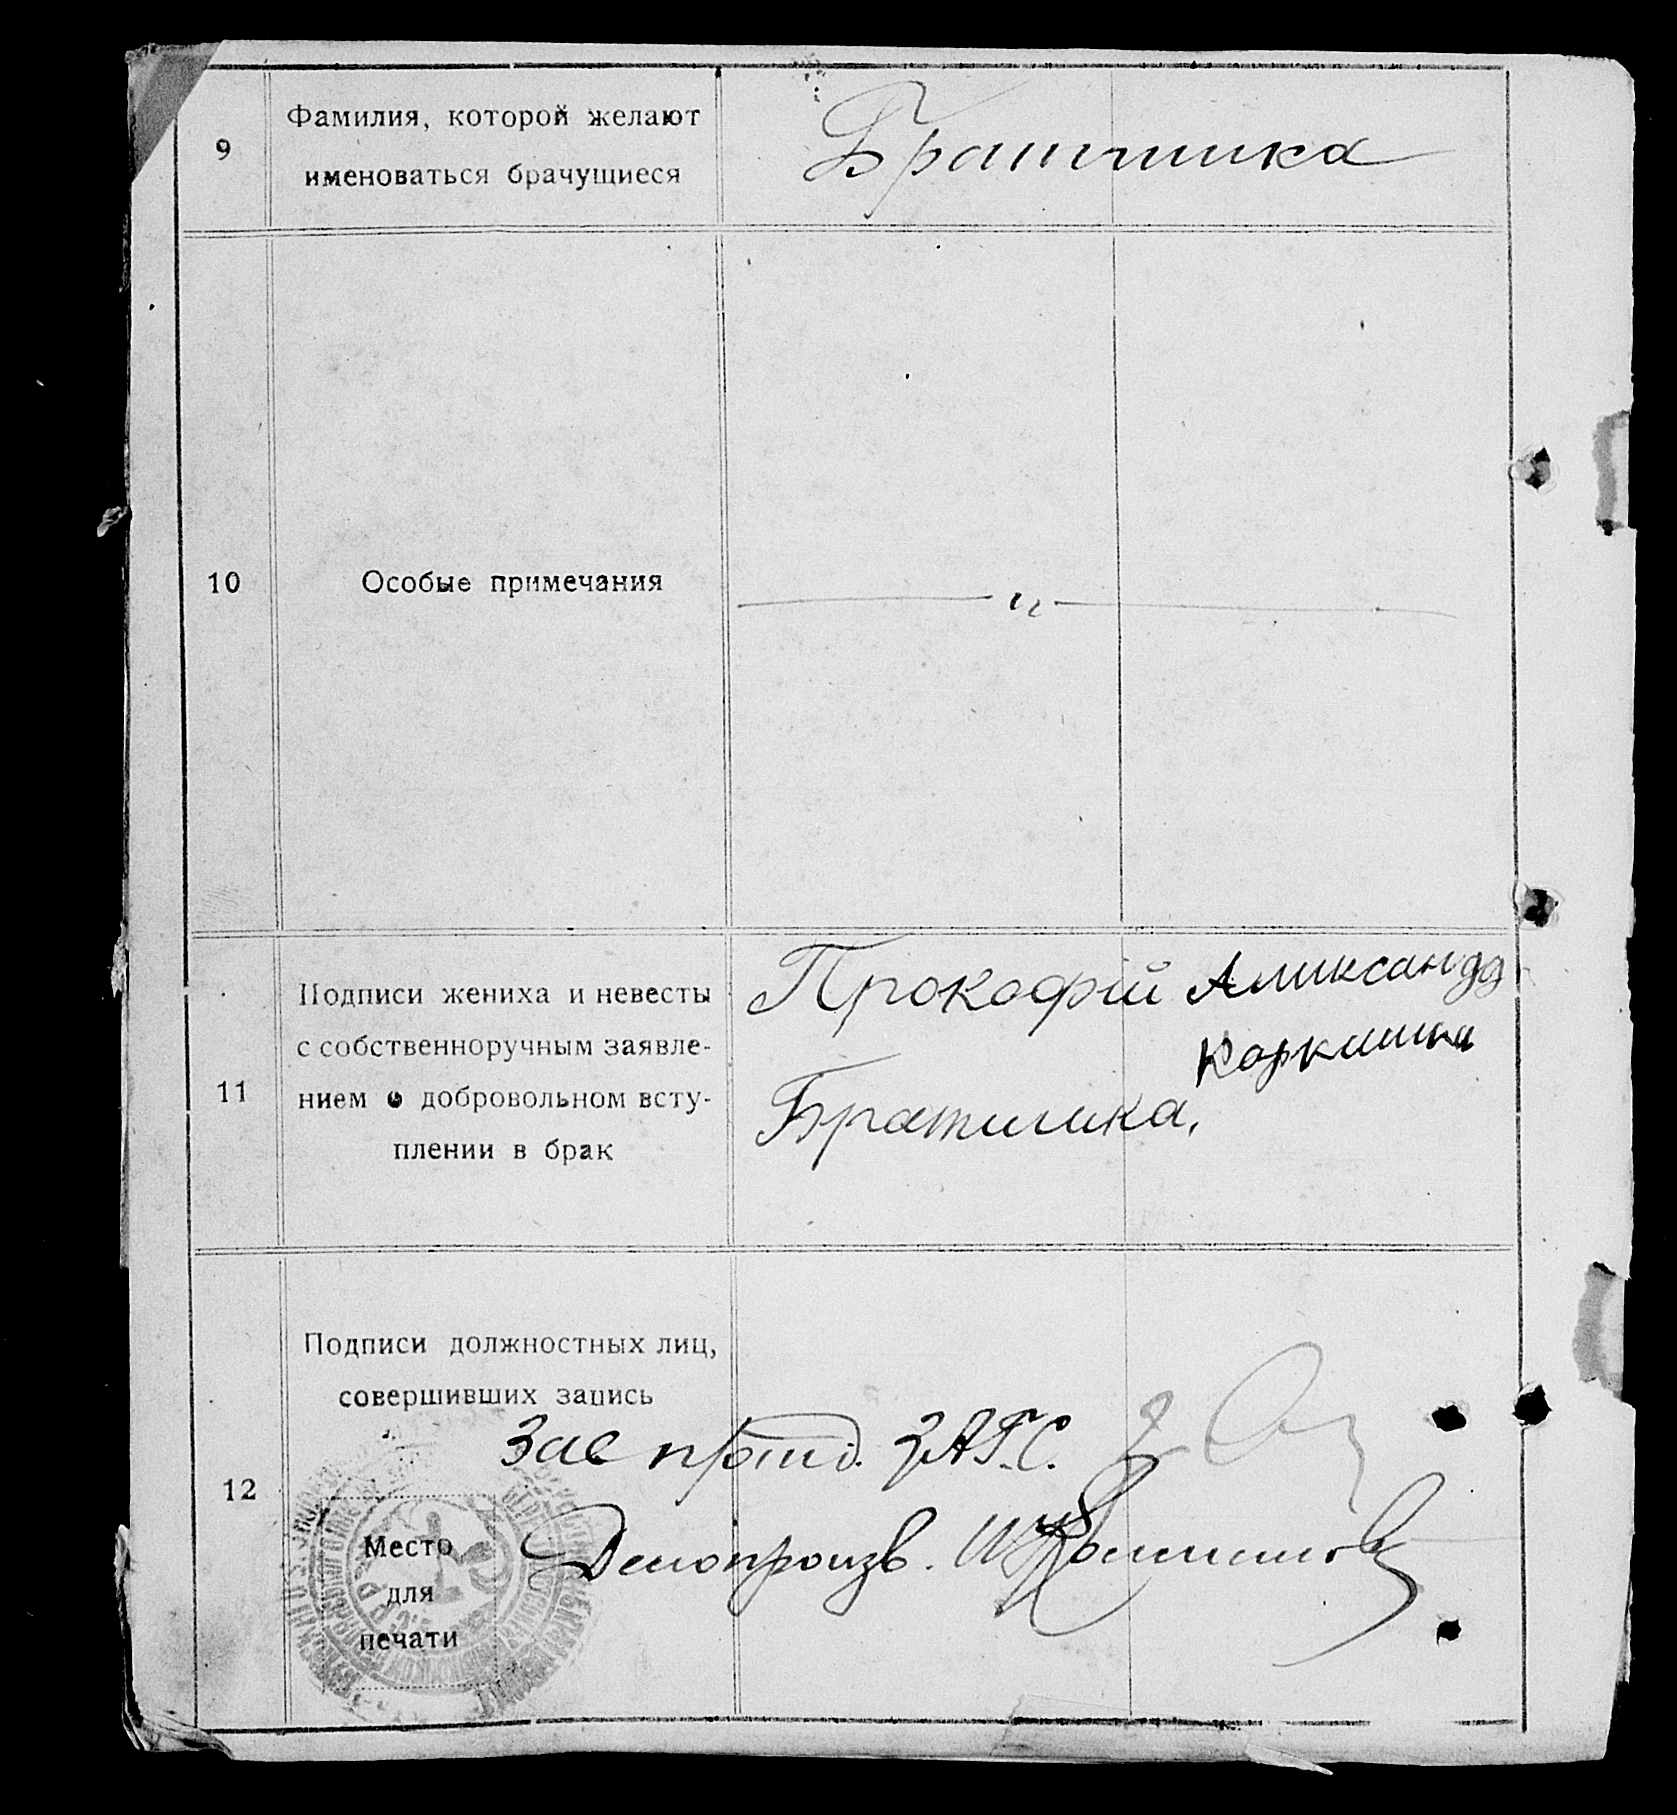 9
Фамилия, которой желают
именоваться брачущиеся
Братчика
10
Особые примечания
— " —
11
Подписи жениха и невесты
с собственноручным заявле-
нием о добровольном всту-
плении в брак
Прокофій
Братшика,
Аликсандр
12
Подписи должностных лиц,
совершивших запись
Зав ЗАГС.
Делопроизв.
Место
для
печати